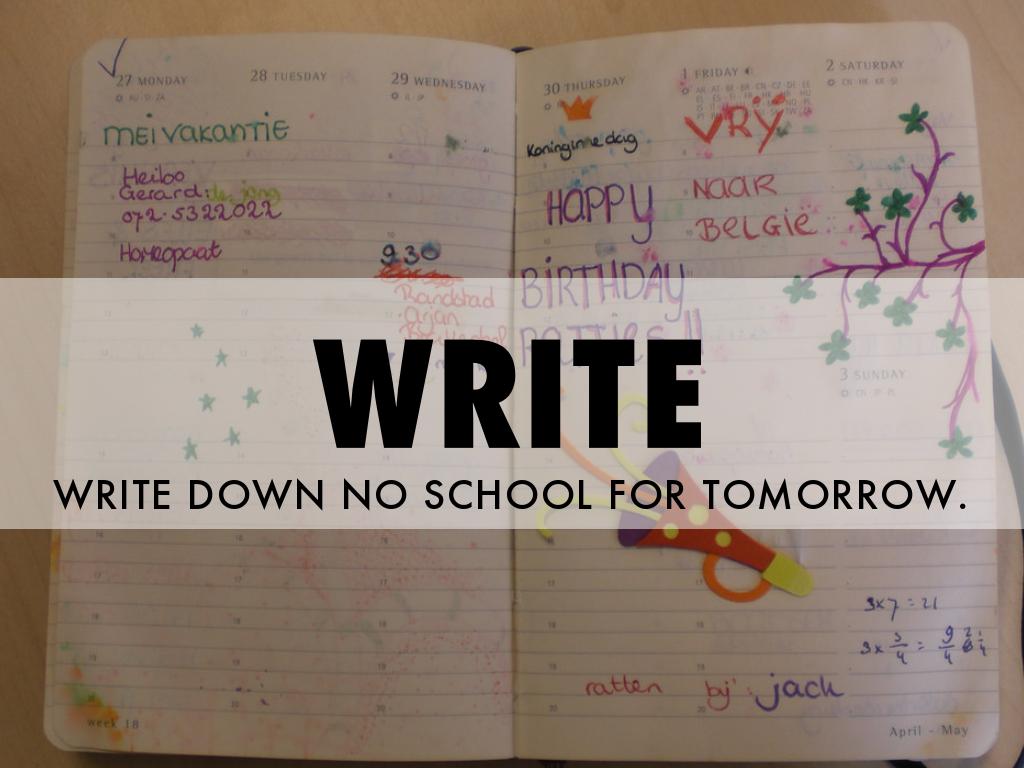 27 MONDAY
28 TUESDAY
29 WEDNESDAY
30 THURSDAY
1 FRIDAY
2 SATURDAY
meivakantie
Heiloo
Gerard: de jong
072-5322022
Homeopaat
930
Randstad
arjan
Koninginnedag
HAPPY
BIRTHDAY
Patties!!
VRIJ
NAAR
BELGIË
3 SUNDAY
WRITE
WRITE DOWN NO SCHOOL FOR TOMORROW.
3x7=21
3x 3/4 = 9/4
ratten bij jack
week 18
April - May